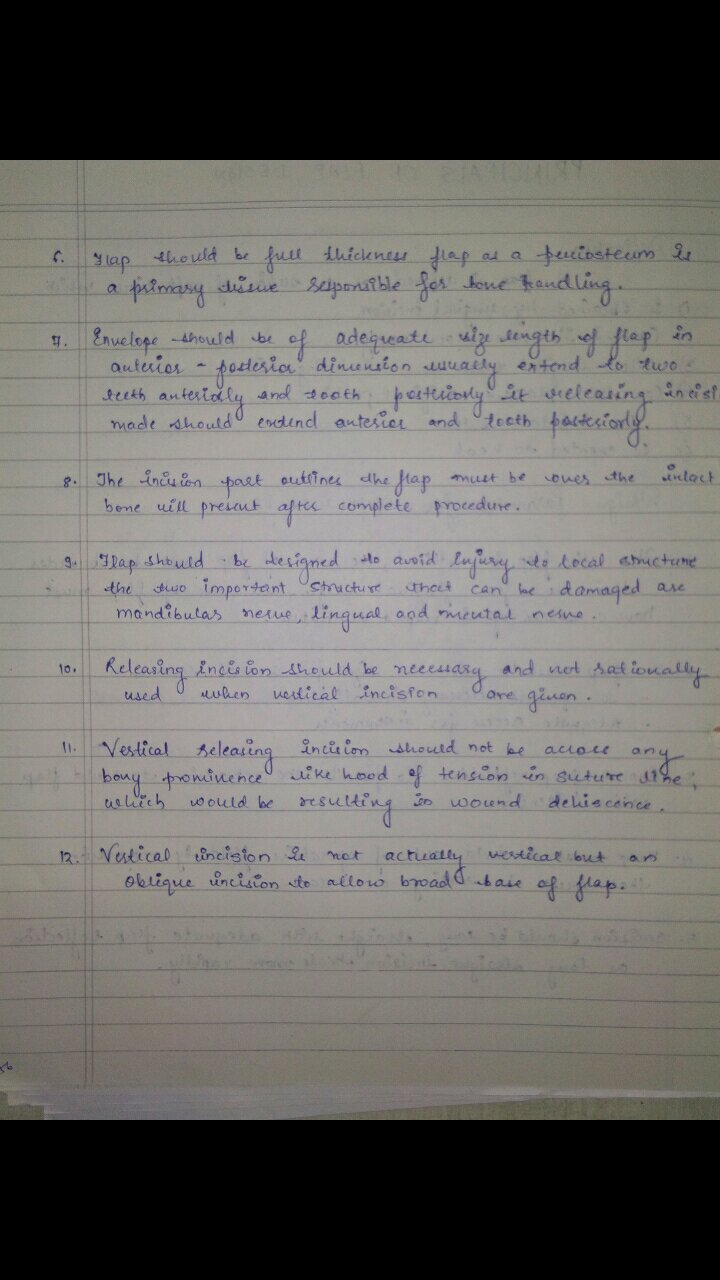 6. Flap should be full thickness flap as a periosteum is
a primary tissue responsible for bone handling.
7. Envelope should be of adequate size length of flap in
anterior - posterior dimension usually extend to two
teeth anteriorly and tooth posteriorly if releasing incisi
made should extend anterior and tooth posteriorly.
8. The incision part outlines the flap must be over the intact
bone will present after complete procedure.
9. Flap should be designed to avoid injury to local structure
the two important structure that can be damaged are
mandibular nerve, lingual and mental nerve.
10. Releasing incision should be necessary and not rationally
used when vertical incision are given.
11. Vertical releasing incision should not be across any
bony prominence like hood of tension in suture line,
which would be resulting in wound dehiscence.
12. Vertical incision is not actually vertical but an
oblique incision to allow broad base of flap.